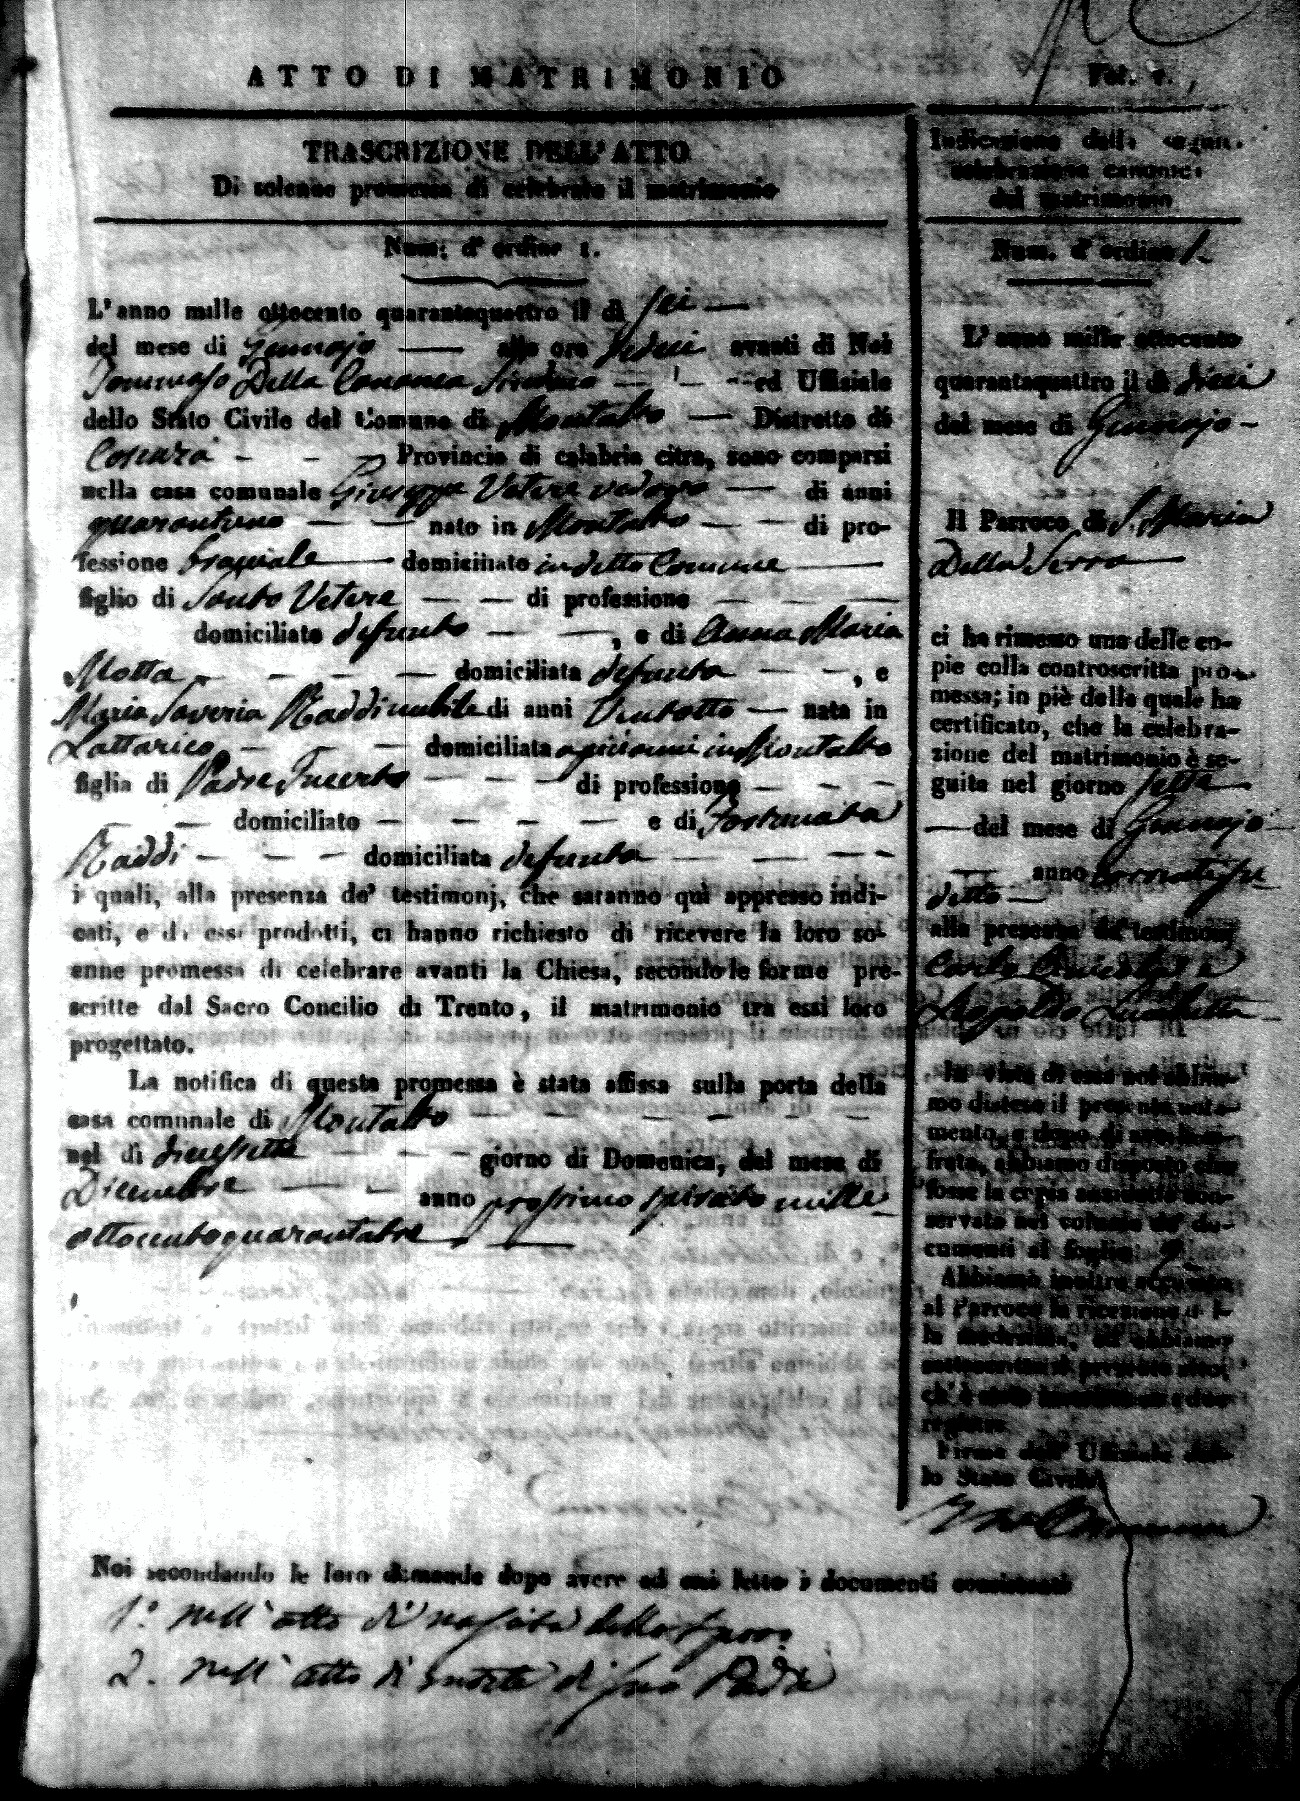 ATTO DI MATRIMONIO
TRASCRIZIONE DELL' ATTO
Di solenne promessa di celebrare il matrimonio
Num: d' ordine 1.
L' anno mille ottocento quarantaquattro il dì sei
del mese di Gennajo alle ore sedeci avanti di Noi
Tommaso Della Cananea Sindaco ed Uffiziale
dello Stato Civile del Comune di Montalto Distretto di
Cosenza Provincia di calabria citra, sono comparsi
nella casa comunale Giuseppe Vetere vedovo di anni
quarantuno nato in Montalto di pro-
fessione domiciliato in detto Comune
figlio di Santo Vetere di professione
domiciliato defunto , e di Anna Maria
Motta domiciliata defunta , e
Maria Saveria Raddi nubile di anni Ventotto nata in
Lattarico domiciliata in Montalto
figlia di Padre Incerto di professione
domiciliato e di Fortunata
Raddi domiciliata defunta
i quali, alla presenza de' testimonj, che saranno quì appresso indi-
cati, e di essi prodotti, ci hanno richiesto di ricevere la loro so-
enne promessa di celebrare avanti la Chiesa, secondo le forme pre-
scritte dal Sacro Concilio di Trento, il matrimonio tra essi loro
progettato.
La notifica di questa promessa è stata affissa sulla porta della
casa comunale di Montalto
nel dì diecessette giorno di Domenica, del mese di
Dicembre anno prossimo spirato mille
ottocentoquarantatre
Noi secondando le loro dimande dopo avere ad essi letto i documenti consistenti
1.° nell' atto di nascita dello sposo
2. nell' atto di morte di suo Padre
Fol. v.
Indicazione della seguita
celebrazione canonica
del matrimonio
Num. d' ordine 1.
L' anno mille ottocento
quarantaquattro il dì dieci
del mese di Gennajo
Il Parroco di S. Maria
Della Serra
ci ha rimesso una delle co-
pie colla controscritta pro-
messa; in piè della quale ha
certificato, che la celebra-
zione del matrimonio è se-
guita nel giorno sette
del mese di Gennajo
anno
detto
alla presenza de' testimonj
Carlo e
Leopoldo
In vista di essa noi abbia-
mo disteso il presente nota-
mento, e dopo di averla ci-
frata, abbiamo disposto che
fosse la copia anzidetta con-
servata nel volume de' do-
cumenti al foglio
Abbiamo inoltre accusato
al Parroco la ricezione del-
la medesima, ed abbiamo
sottoscritto il presente atto,
ch' è stato inscritto su i due
registri.
Firma dell' Uffiziale del-
lo Stato Civile